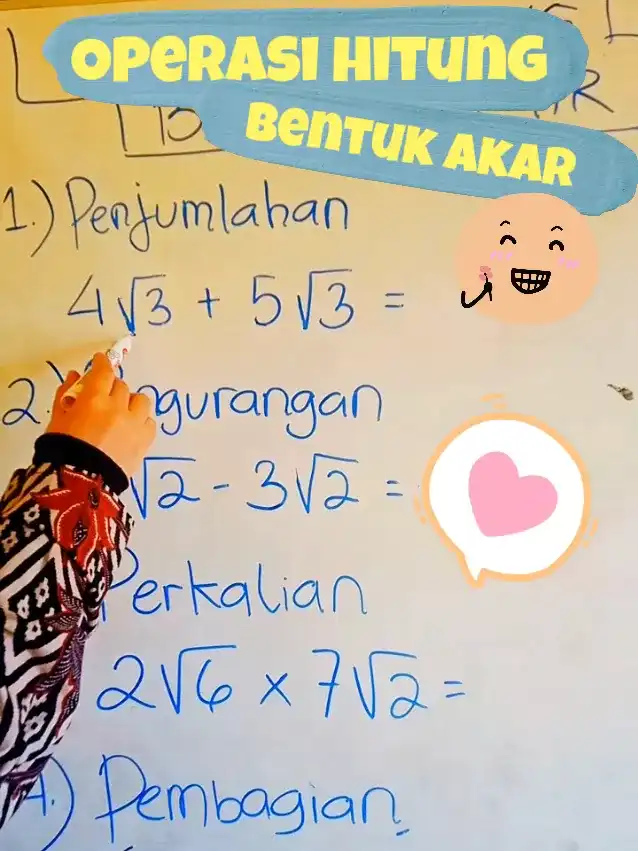 OPERASI HITUNG
BENTUK AKAR
1.) Penjumlahan
4√3 + 5√3 =
2.) ngurangan
√2 - 3√2 =
Perkalian
2√6 × 7√2 =
4.) Pembagian